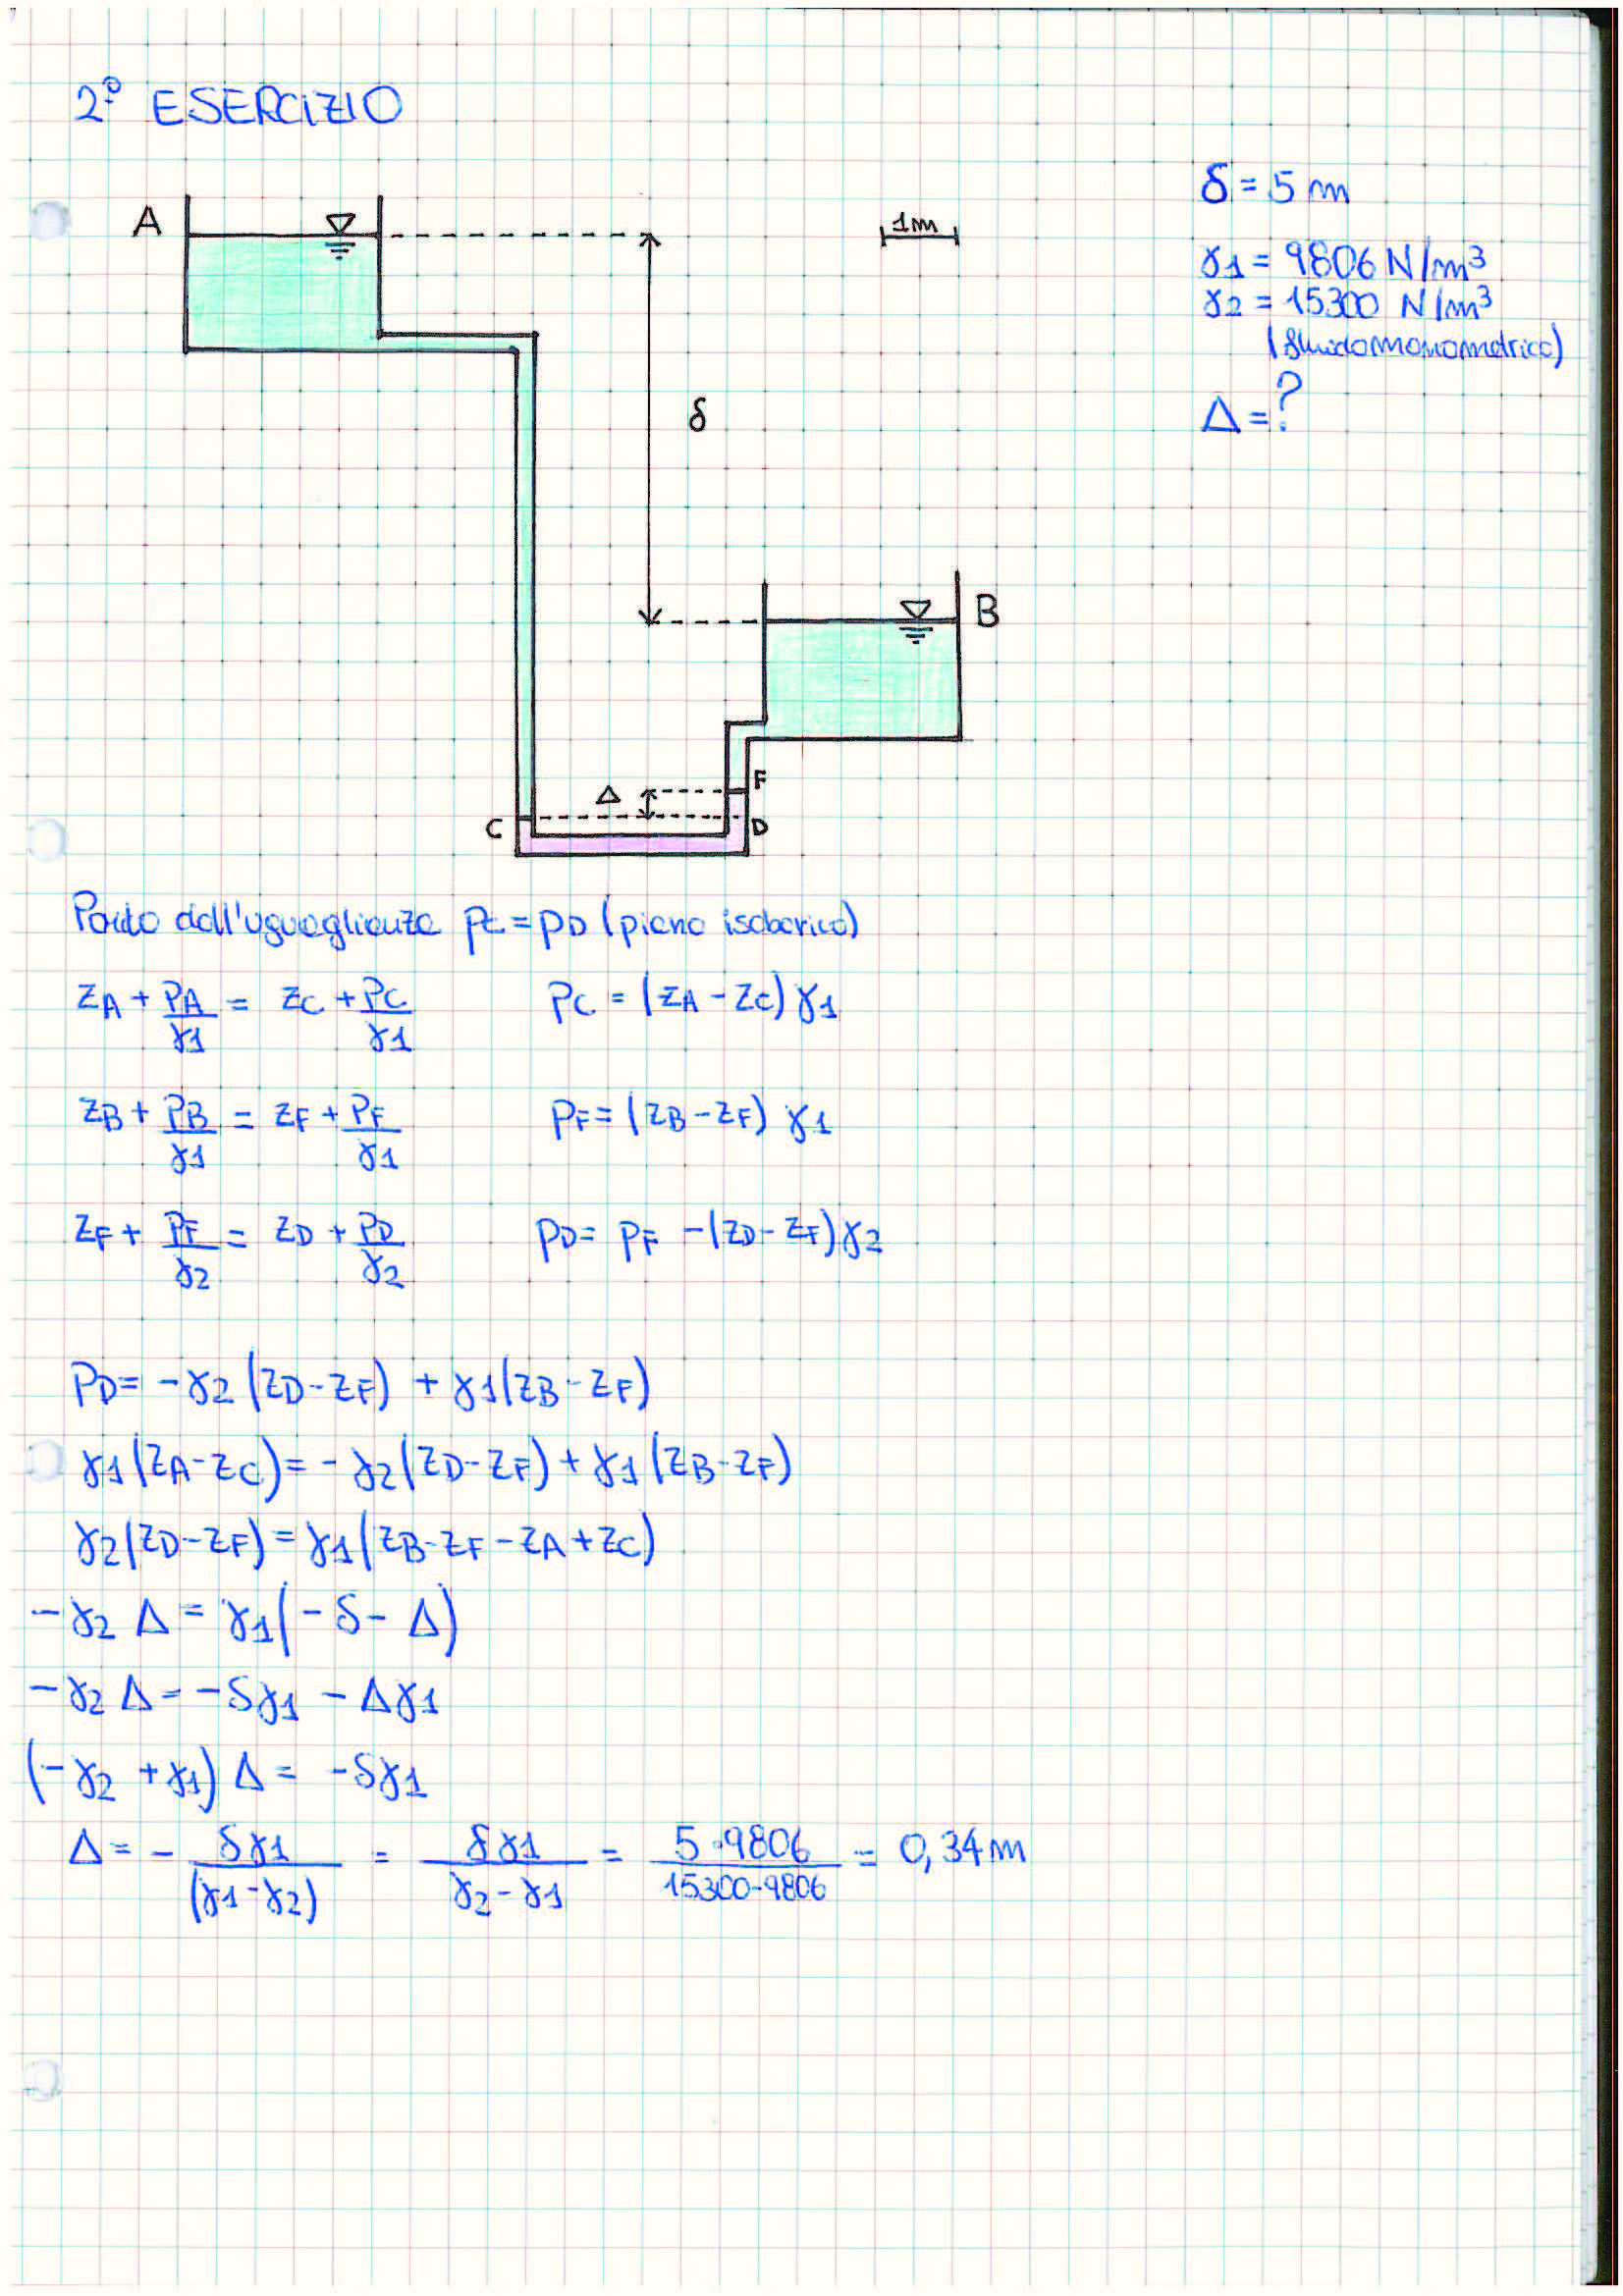 2° ESERCIZIO
δ = 5 m
A
1m
γ1 = 9806 N/m³
γ2 = 15300 N/m³
(fluido manometrico)
Δ = ?
δ
B
F
Δ
C
D
Parto dall'uguaglianza pC = pD (piano isobarico)
zA + pA/γ1 = zC + pC/γ1 pC = (zA - zC) γ1
zB + pB/γ1 = zF + pF/γ1 pF = (zB - zF) γ1
zF + pF/γ2 = zD + pD/γ2 pD = pF - (zD - zF) γ2
pD = -γ2 (zD - zF) + γ1 (zB - zF)
γ1 (zA - zC) = -γ2 (zD - zF) + γ1 (zB - zF)
γ2 (zD - zF) = γ1 (zB - zF - zA + zC)
-γ2 Δ = γ1 (-δ - Δ)
-γ2 Δ = -δγ1 - Δγ1
(-γ2 + γ1) Δ = -δγ1
Δ = - δγ1/(γ1 - γ2) = δγ1/γ2 - γ1 = 5·9806/15300-9806 = 0,34 m